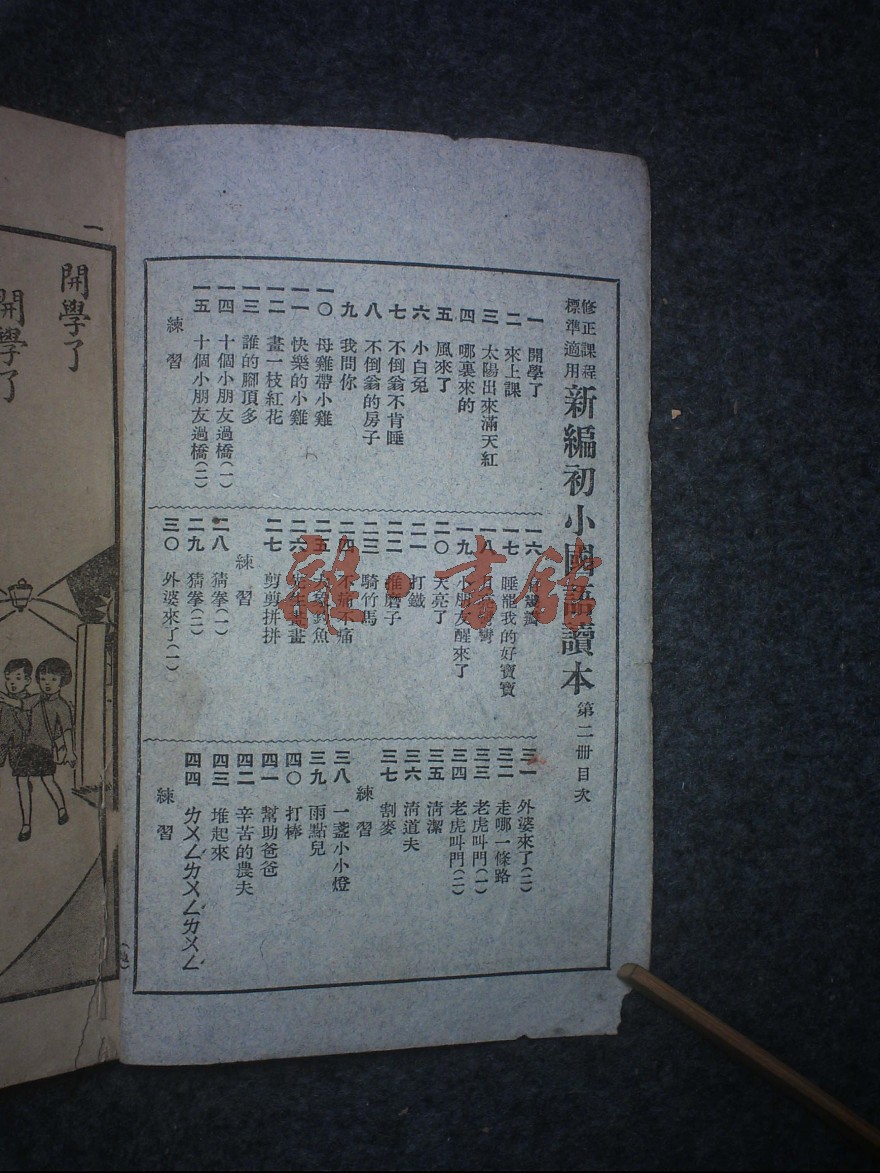 修正課程
標準適用
新編初小國語讀本
第二冊目次
一 開學了
二 來上課
三 太陽出來滿天紅
四 哪裏來的
五 風來了
六 小白兔
七 不倒翁不肯睡
八 不倒翁的房子
九 我問你
一〇 母雞帶小雞
一一 快樂的小雞
一二 畫一枝紅花
一三 誰的腳頂多
一四 十個小朋友過橋(一)
一五 十個小朋友過橋(二)
練習
一六
一七 睡罷我的好寶寶
一八
一九 小朋友醒來了
二〇 天亮了
二一 打鐵
二二 推磨子
二三 騎竹馬
二四 不痛不痛
二五 魚
二六 先生畫畫
二七 剪剪拼拼
練習
二八 猜拳(一)
二九 猜拳(二)
三〇 外婆來了(一)
三一 外婆來了(二)
三二 走哪一條路
三三 老虎叫門(一)
三四 老虎叫門(二)
三五 清潔
三六 清道夫
三七 割麥
練習
三八 一盞小小燈
三九 雨點兒
四〇 打棒
四一 幫助爸爸
四二 辛苦的農夫
四三 堆起來
四四 ㄌㄨㄥㄌㄨㄥㄌㄨㄥ
練習
雜·書館
一
開學了
開學了